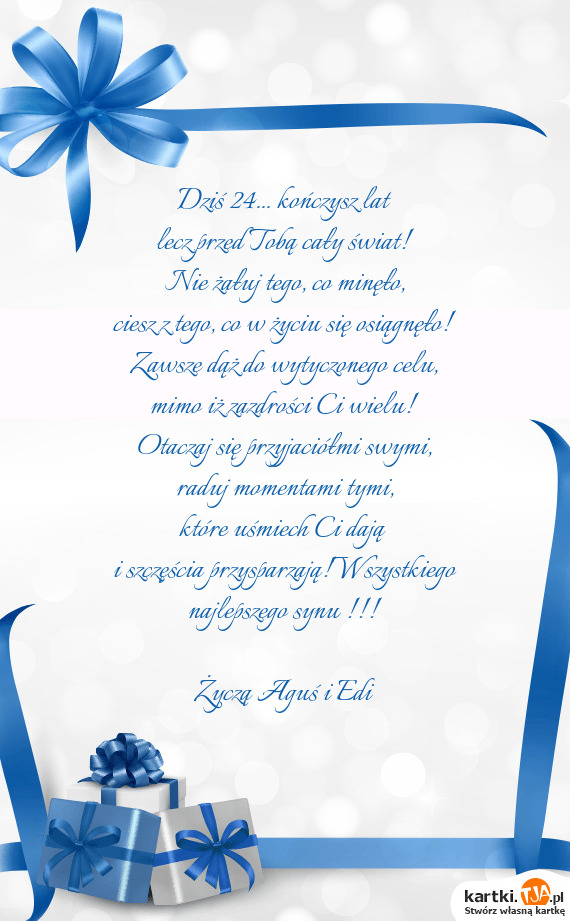 Dziś 24... kończysz lat
lecz przed Tobą cały świat!
Nie żałuj tego, co minęło,
ciesz z tego, co w życiu się osiągnęło!
Zawsze dąż do wytyczonego celu,
mimo iż zazdrości Ci wielu!
Otaczaj się przyjaciółmi swymi,
raduj momentami tymi,
które uśmiech Ci dają
i szczęścia przysparzają! Wszystkiego
najlepszego synu !!!
Życzą Aguś i Edi
kartki.TJA.pl
Stwórz własną kartkę